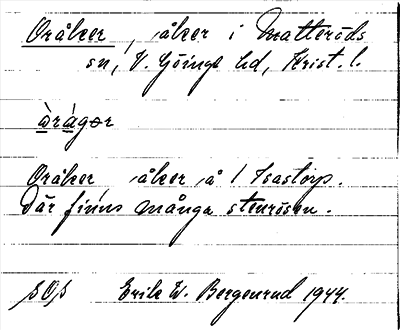 Oråker, åker i Matteröds
sn, V. Göinge hd, Krist. l.
òrágər
Oråker, åker å 1 Isastorp.
Där finns många stenrösen.
SOS Erik W. Bergenrud 1944.